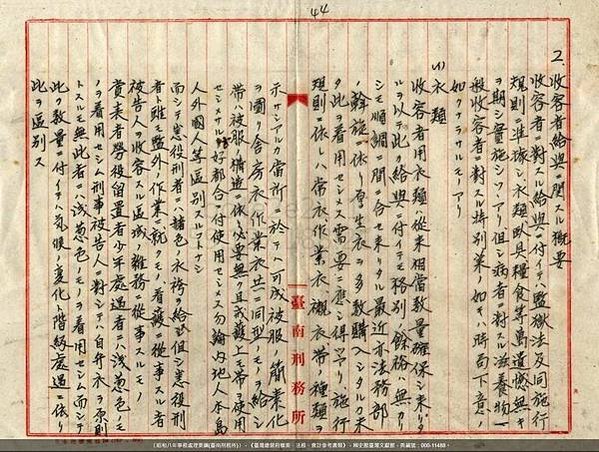 44
2. 収容者給與ニ関スル概要
収容者ニ對スル給與ニ付イテハ監獄法及同施行
規則ニ準據シ衣類臥具糧食等萬遺憾無キ
ヲ期シ實施シツヽアリ但シ病者ニ對スル滋養物一
般収容者ニ對スル特別菜ノ如キハ時局下意ノ
如クナラサルモノアリ
(1) 衣類
収容者用衣類ハ従来相當数量確保シ来リタ
ルヲ以テ此ノ給與ニ付イテモ格別ノ餘裕ハ無カリ
シモ順調ニ間ニ合セ来リタル最近亦法務部
ノ斡旋ニ依リ厚生衣ヲ多数購入シタルタ
メ此ヲ着用セシメ需要ニ應シ得ツヽアリ施行
規則ニ依レハ常衣作業衣襯衣帯ノ種類ヲ
示サンアルカ當所ニ於テハ可成被服ノ簡業化
ヲ圖リ舎房衣作業衣共ニ同型ノモノヲ給シ
帯ハ被服ノ構造ニ依リ必要無ク且戒護上モ帯ヲ使用
セシメサル好都合ニ付使用セシメス勿論内地人本島
人外國人等區別スルコトナシ
而シテ懲役刑者ニハ赭色ノ衣袴ヲ給シ但シ懲役刑
者ト雖モ監外ノ作業ニ就クモノ看護ニ從事スル者
被告人ヲ収容スル區域ノ雜務ニ從事スルモノ
賞表者勞役留置者少年處遇者ニハ浅葱色ノモ
ノヲ着用セシム刑事被告人ニ對シテハ自弁衣ヲ原則
トスルモ無此者ニハ浅葱色ノモノヲ着用セシム而シテ
此ノ数量ニ付イテハ氣候ノ變化ト階級處遇ニ依リ
此ヲ區別ス
臺南刑務所